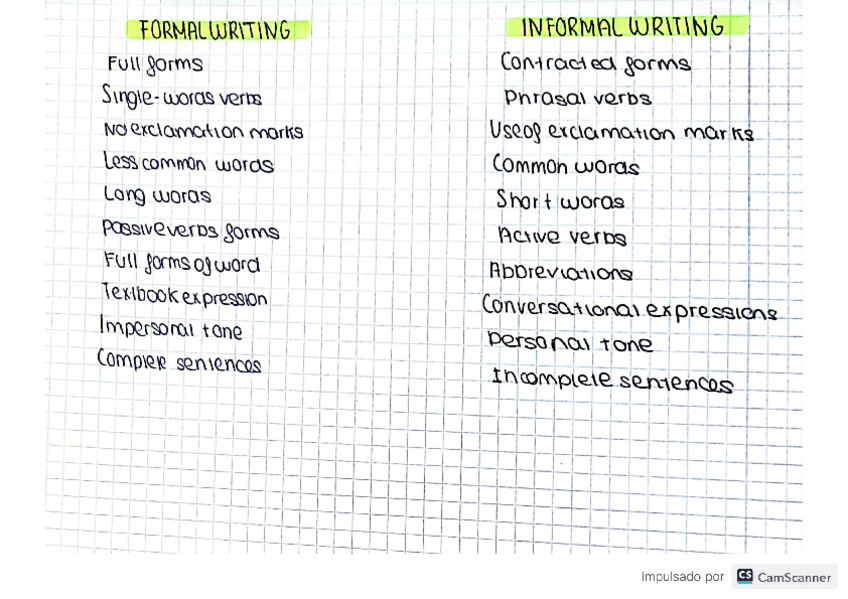 FORMAL WRITING
Full forms
Single-words verbs
No exclamation marks
Less common words
Long words
Passive verbs forms
Full forms of word
Textbook expression
Impersonal tone
Complete sentences
INFORMAL WRITING
Contracted forms
Phrasal verbs
Use of exclamation marks
Common words
Short words
Active verbs
Abbreviations
Conversational expressions
Personal tone
Incomplete sentences
Impulsado por CS CamScanner